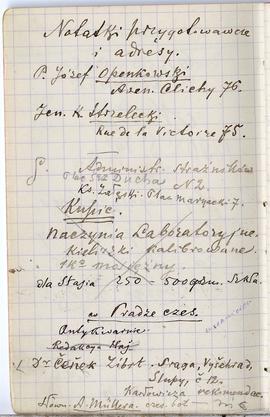 Notatki przygotowawcze
i adresy.
P. Józef Openkowski
Aven. Clichy 76.
Jen. K. Strzelecki
Rue de la Victoire 75.
Administr. strażników
Ducha N 2.
Ks. Załęski. Plac Maryacki 7.
Kupić.
naczynia Laboratoryjne.
kieliszki kalibrowane
dla Stasia 250 - 500 gram. szkła.
w Pradze czes.
Antykwarnie
Redakcja Máj
Dr Čeněk Zíbrt. Praga, Vyšehrad,
Slupy, č 12.
Karłowicza rekomendac.
Słown. A. Müllera. czes. bot.